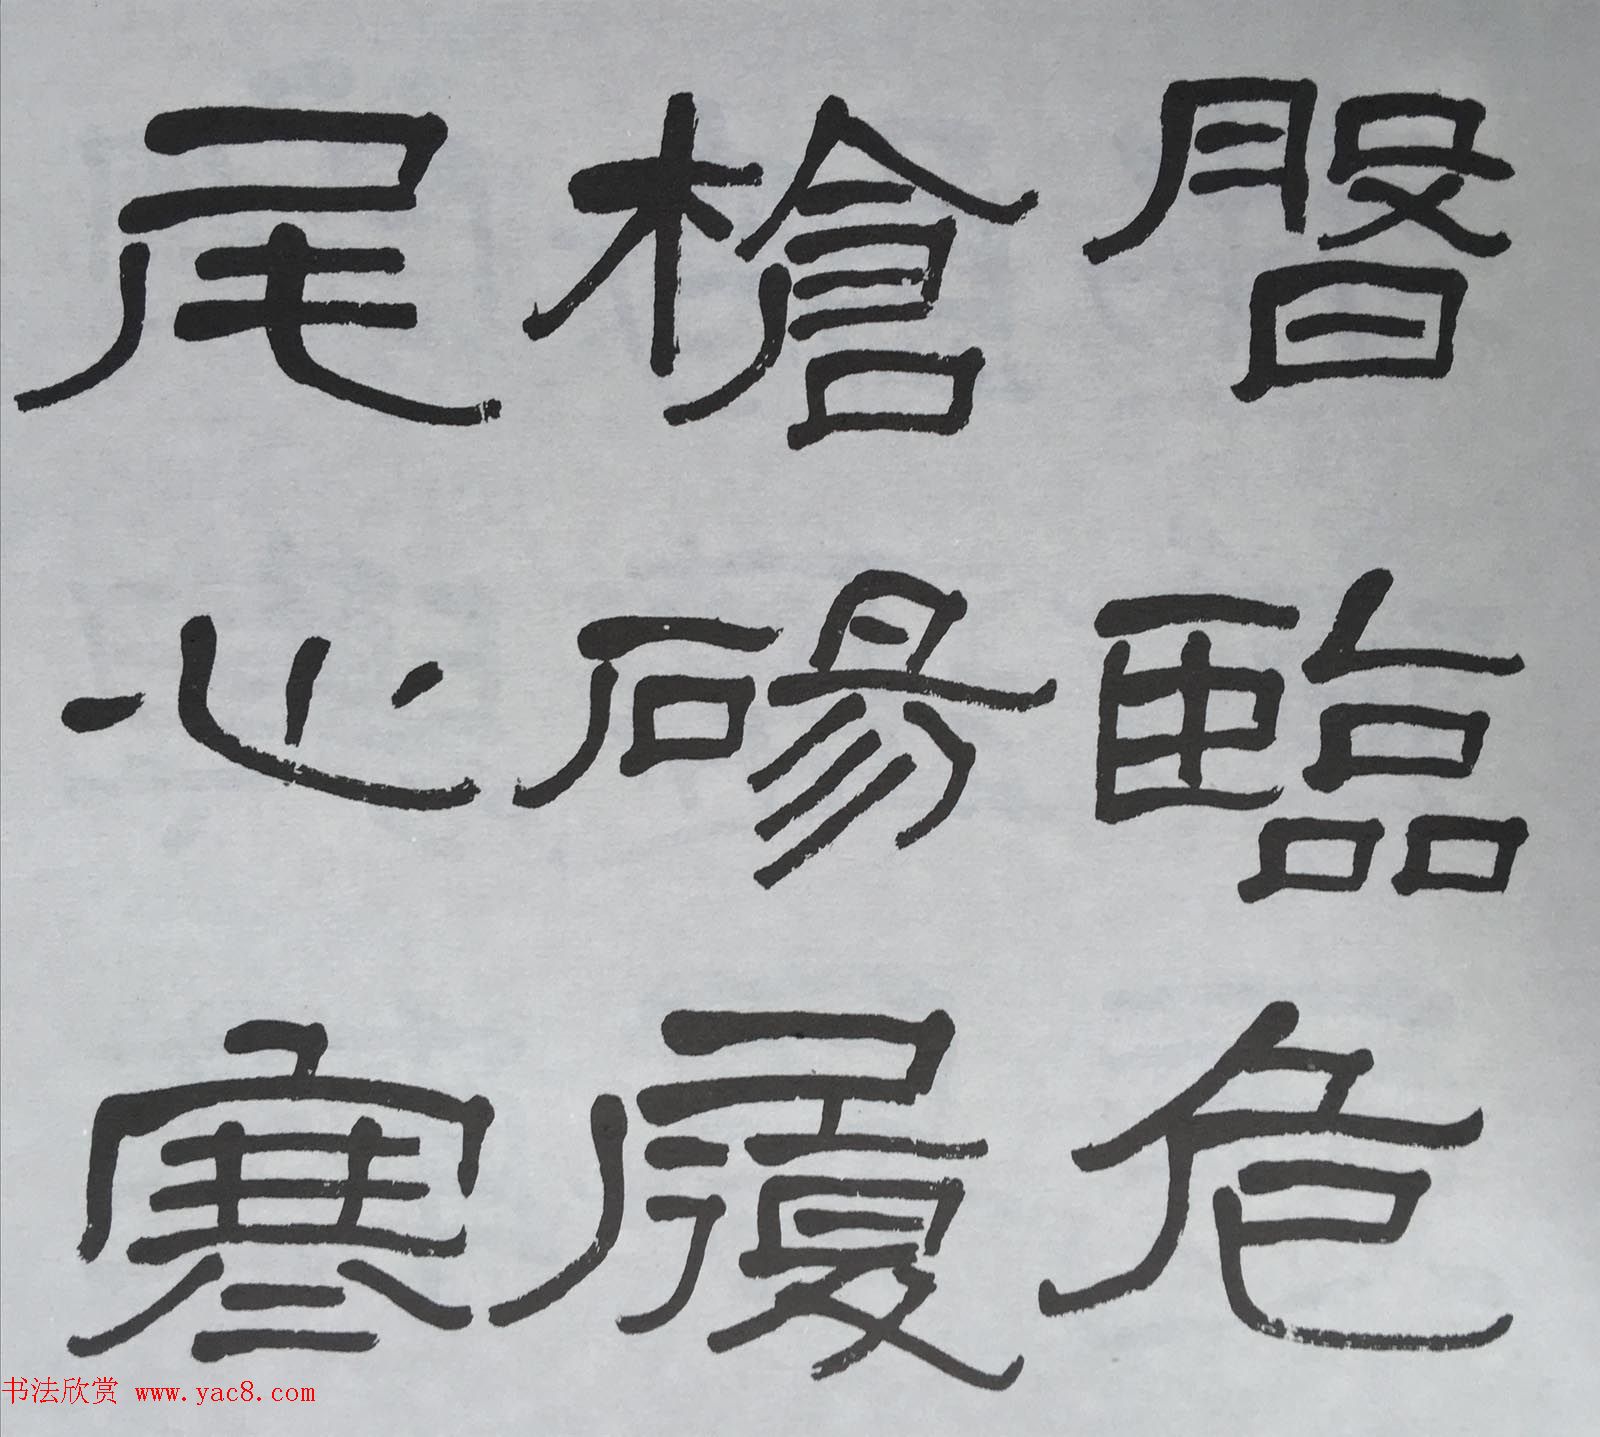 磐臨危
槍碭履
尾心寒
书法欣赏 www.yac8.com